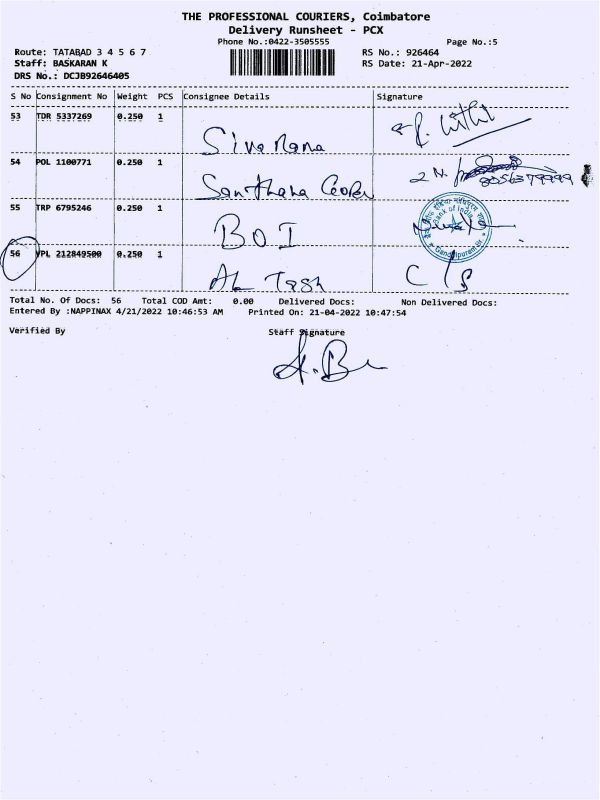 THE PROFESSIONAL COURIERS, Coimbatore
Delivery Runsheet - PCX
Phone No.:0422-3505555 Page No.:5
Route: TATABAD 3 4 5 6 7 RS No.: 926464
Staff: BASKARAN K RS Date: 21-Apr-2022
DRS No.: DCJB92646405
S No Consignment No Weight PCS Consignee Details Signature
53 TDR 5337269 0.250 1
Siva Rama
54 POL 1100771 0.250 1
Santhana
55 TRP 6795246 0.250 1
BOI
Bank of India
56 VPL 212849500 0.250 1
C/S
Total No. Of Docs: 56 Total COD Amt: 0.00 Delivered Docs: Non Delivered Docs:
Entered By :NAPPINAX 4/21/2022 10:46:53 AM Printed On: 21-04-2022 10:47:54
Verified By Staff Signature